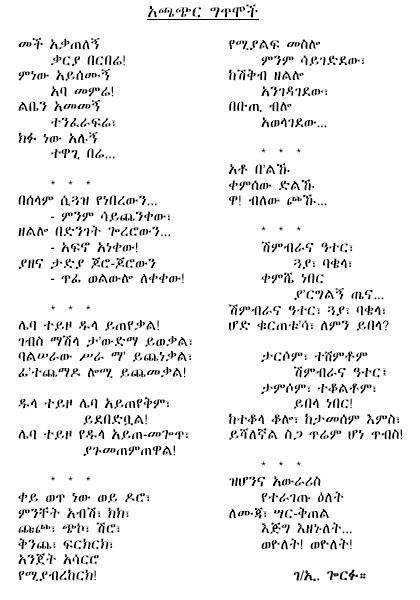 አጫጭር ግጥሞች
መች አቃጠለኝ
ቃርያ በርበሬ!
ምነው አይሰሙኝ
አባ መምሬ!
ልቤን አመመኝ
ተንፈራፍሬ፣
ክፉ ነው አሉኝ
ተዋጊ በሬ...
* * *
በሰላም ሲጓዝ የነበረውን...
- ምንም ሳይጨንቀው፣
ዘልሎ በድንገት ጐረሮውን...
- አፍኖ አነቀው!
ያዘና ታድያ ጆሮ-ጆሮውን
- ጥፊ ወልውሎ ለቀቀው!
* * *
ሌባ ተይዞ ዱላ ይጠየቃል!
ገብስ ማሽላ ታ'ውድማ ይወቃል፣
ባልሠራው ሥራ ማ' ይጨነቃል፣
ፊ'ተጨማዶ ሎሚ ይጨመቃል!
ዱላ ተይዞ ሌባ አይጠየቅም፣
ይደበድቧል!
ሌባ ተይዞ የዱላ አይጡ-መጐጥ፣
ያጉመጠምጠዋል!
* * *
ቀይ ወጥ ነው ወይ ዶሮ፣
ምንቸት አብሽ፣ ክክ፣
ጩሮ፣ ጭኮ፣ ሽሮ፣
ቅንጨ፣ ፍርክርክ፣
አንጀት አሳርሮ
የሚያብረከርክ!
የሚያልፍ መስሎ
ምንም ሳይገድደው፣
ከሽቅብ ዘልሎ
አንገዳገደው፣
በቡጢ ብሎ
አወላገደው...
* * *
አቶ በ'ልኹ
ቀምሰው ድልኹ
ዋ! ብለው ጮኹ...
* * *
ሽምብራና ዓተር፣
ጓያ፣ ባቄላ፣
ቀምሼ ነበር
ያ'ርግልኝ ጤና...
ሽምብራና ዓተር፣ ጓያ፣ ባቄላ፣
ሆድ ቁርጠቱ'ሳ፣ ለምን ይበላ?
ታርሶም፣ ተሸምቶም
ሽምብራና ዓተር፣
ታምሶም፣ ተቆልቶም፣
ይበላ ነበር!
ከተቆላ ቆሎ፣ ከታመሰም እምስ፣
ይሻለኛል ስጋ ጥሬም ሆነ ጥብስ!
* * *
ዝሆንና አውራሪስ
የተራገጡ ዕለት
ለሙጃ፣ ሣር-ቅጠል
እጅግ እዘኑለት...
ወዮለት! ወዮለት!
ገ/ኢ. ጐርፉ።